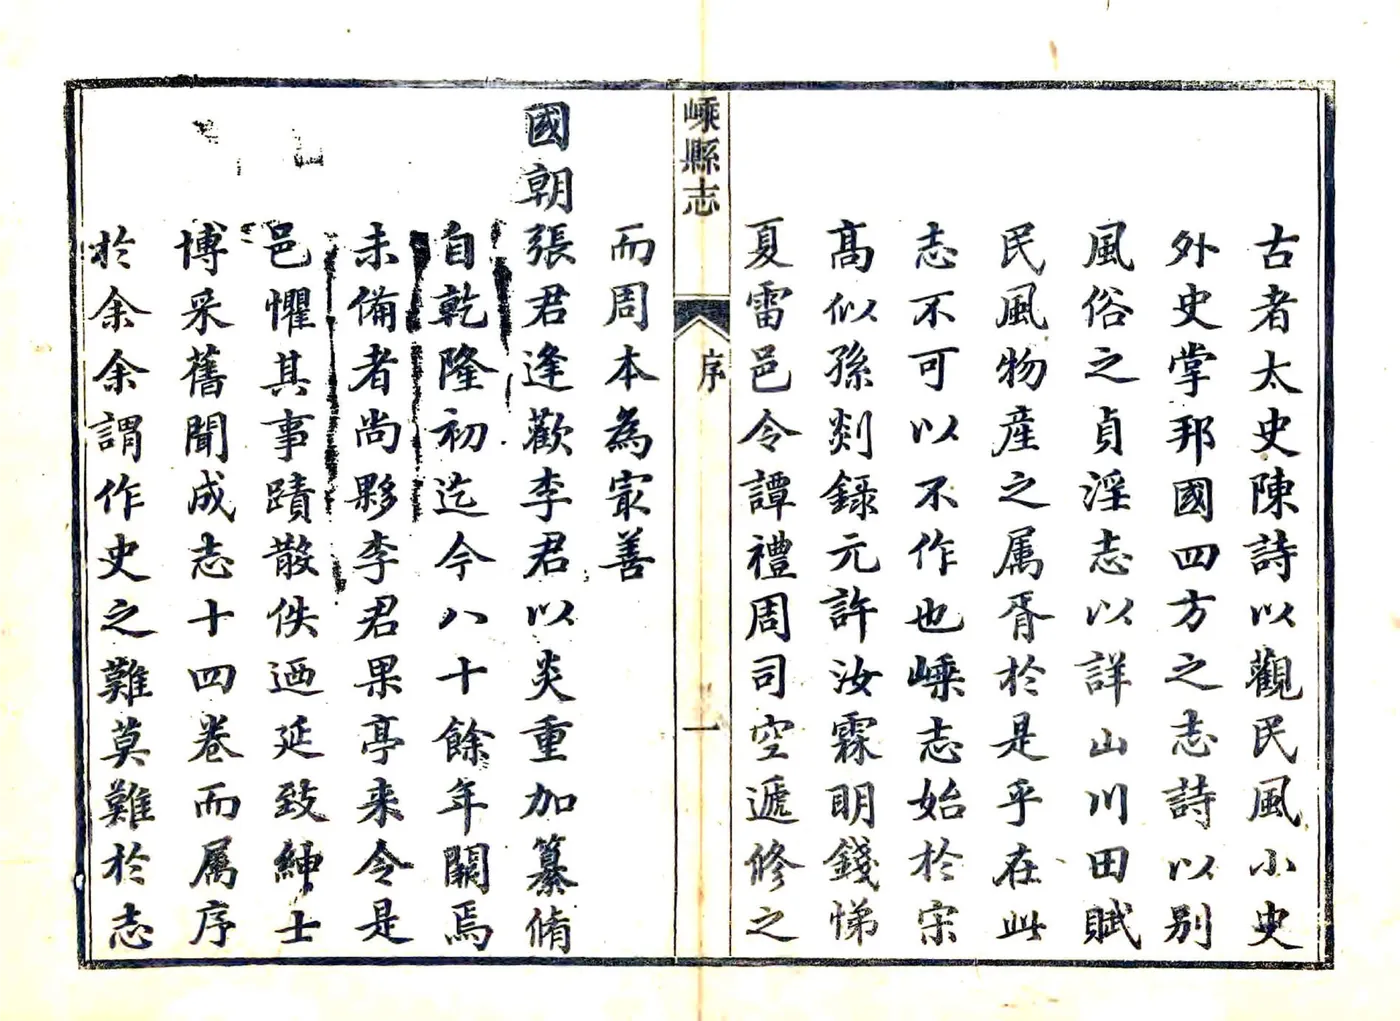 古者太史陳詩以觀民風小史
外史掌邦國四方之志詩以别
風俗之貞淫志以詳山川田賦
民風物產之属胥於是乎在此
志不可以不作也嵊志始於宋
高似孫剡録元許汝霖明錢悌
夏雷邑令譚禮周司空遞修之
嵊縣志
序
一
而周本為㝡善
國朝張君逢歡李君以炎重加纂脩
自乾隆初迄今八十餘年闕焉
未備者尚夥李君果亭来令是
邑懼其事蹟散佚迺延致紳士
博采舊聞成志十四卷而属序
於余余謂作史之難莫難於志